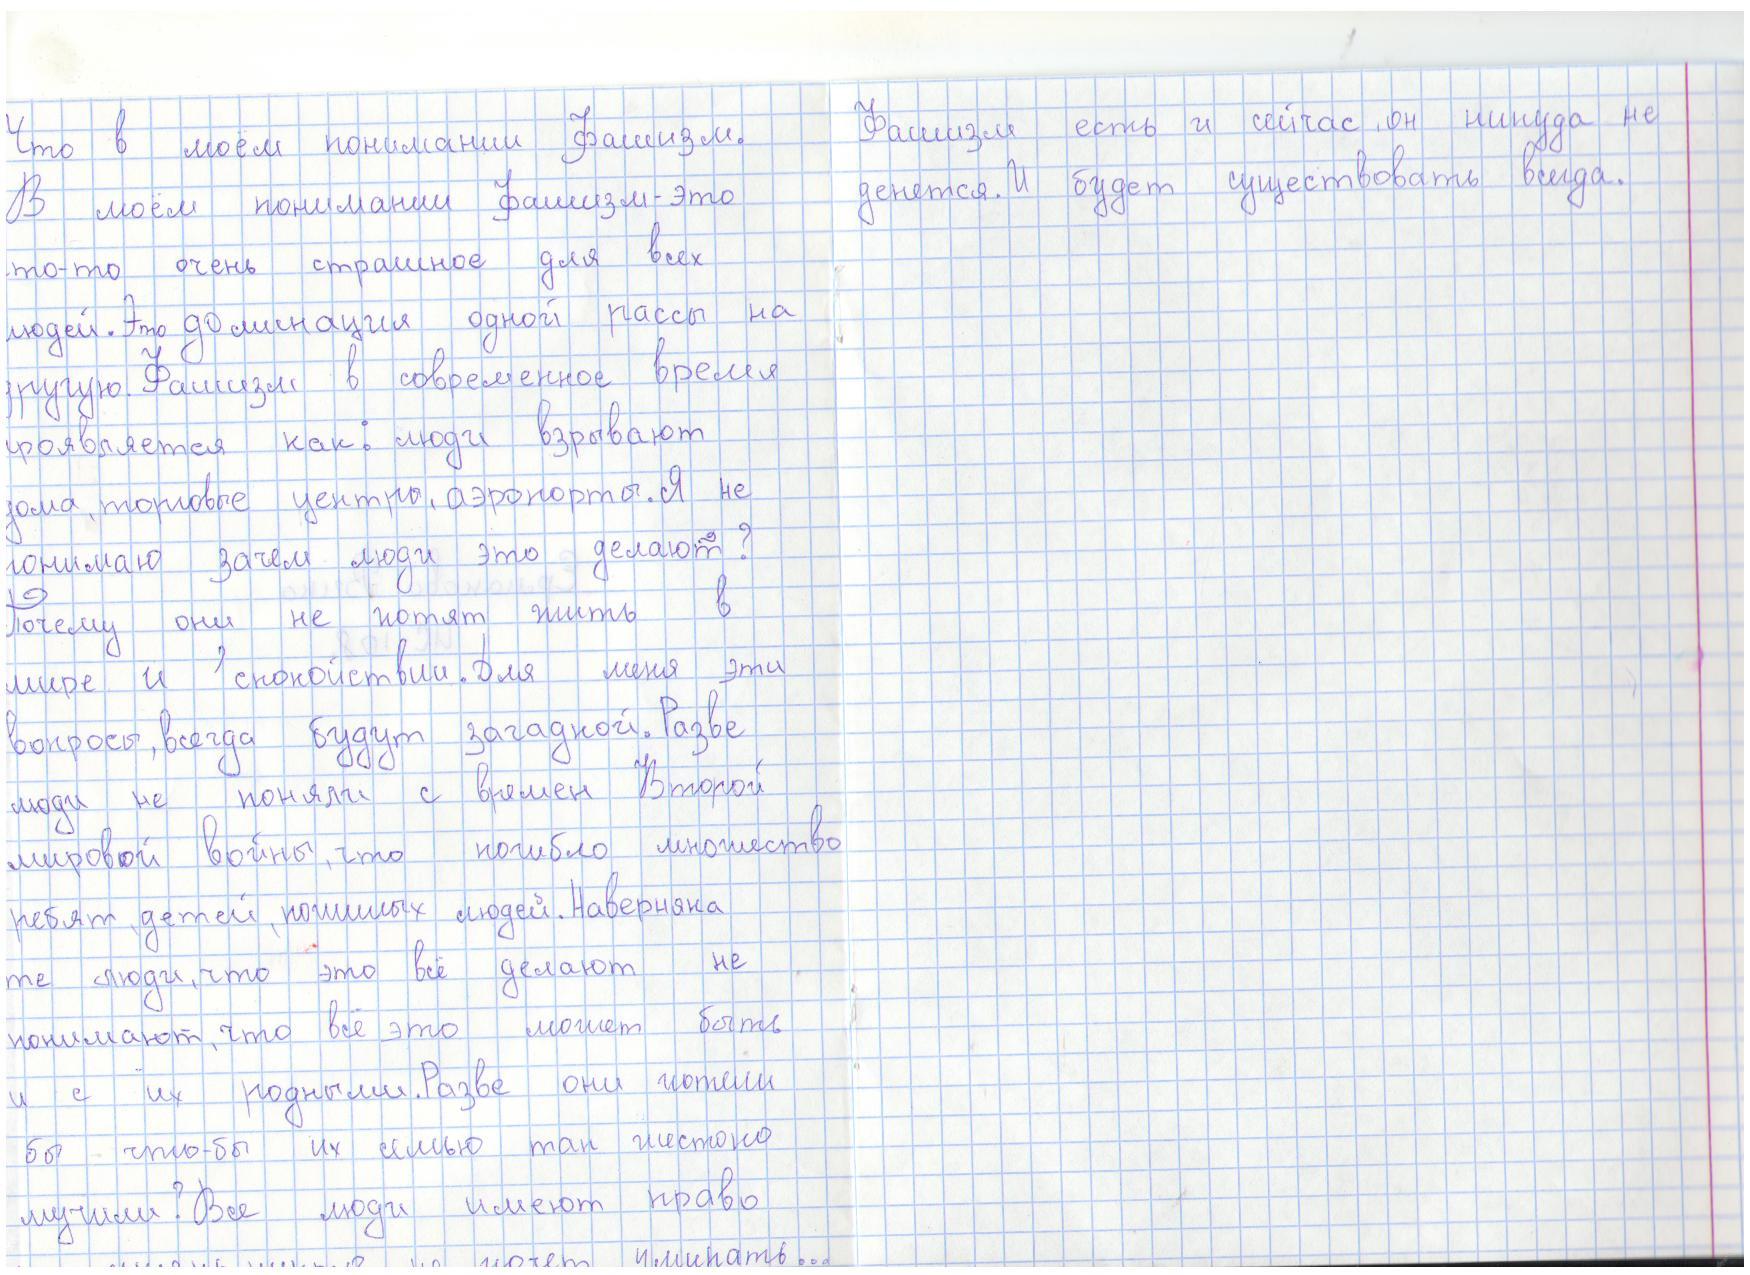 Что в моём понимании Фашизм.
В моём понимании фашизм-это
то-то очень страшное для всех
людей. Это доминация одной рассы на
другую. Фашизм в современное время
проявляется как: люди взрывают
дома, торговые центры, аэропорты. Я не
понимаю зачем люди это делают?
Почему они не хотят жить в
мире и спокойствии. Для меня эти
вопросы, всегда будут загадкой. Разве
люди не поняли с времен Второй
мировой войны, что погибло множество
ребят, детей, пожилых людей. Наверняка
те люди, что это всё делают не
понимают, что всё это может быть
и с их родными. Разве они хотели
бы что-бы их семью так жестоко
мучили? Все люди имеют право
не хочет умирать...
Фашизм есть и сейчас, он никуда не
денется. И будет существовать всегда.